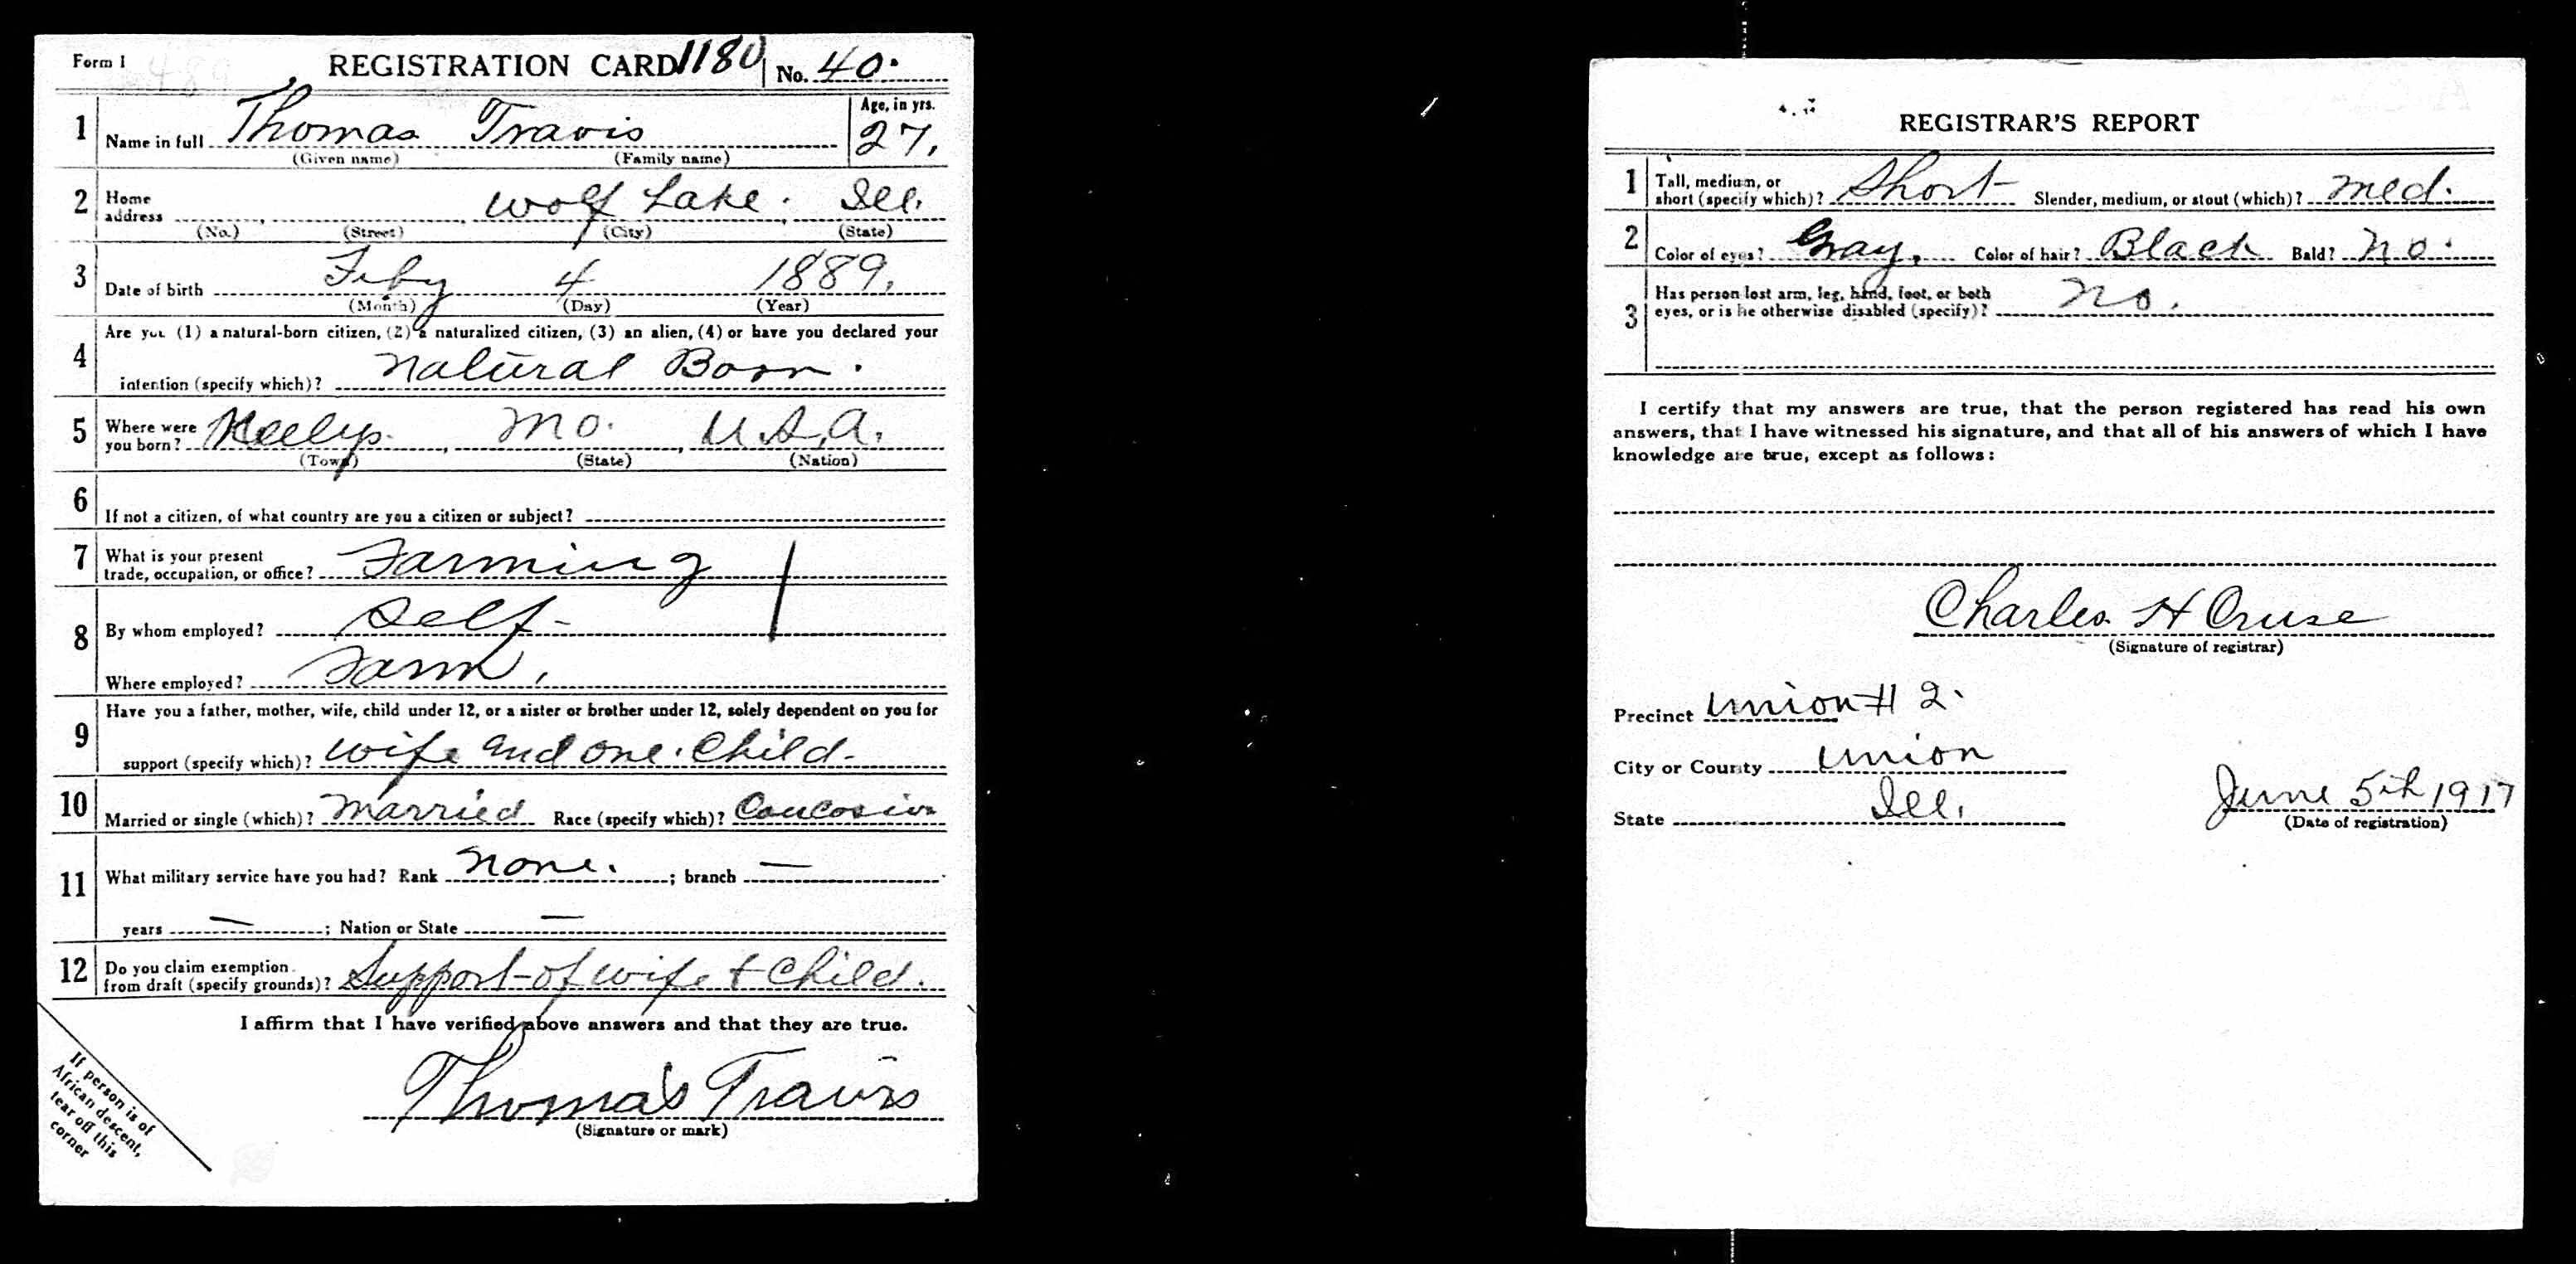 Form 1 REGISTRATION CARD 1180 No. 40.
1 Name in full Thomas Travis Age, in yrs. 27,
(Given name) (Family name)
2 Home address Wolf Lake. Ill.
(No.) (Street) (City) (State)
3 Date of birth Feby 4 1889,
(Month) (Day) (Year)
Are you (1) a natural-born citizen, (2) a naturalized citizen, (3) an alien, (4) or have you declared your
4 intention (specify which)? Natural Born.
5 Where were you born? Mo. U.S.A.
(Town) (State) (Nation)
6 If not a citizen, of what country are you a citizen or subject?
7 What is your present trade, occupation, or office? Farming
8 By whom employed? Self-
Where employed? Farm,
Have you a father, mother, wife, child under 12, or a sister or brother under 12, solely dependent on you for
9 support (specify which)? Wife and one Child-
10 Married or single (which)? Married Race (specify which)? Caucosian
11 What military service have you had? Rank None. ; branch —
years — ; Nation or State —
12 Do you claim exemption from draft (specify grounds)? Support of wife + Child.
I affirm that I have verified above answers and that they are true.
Thomas Travis
(Signature or mark)
If person is of
African descent,
tear off this
corner
REGISTRAR'S REPORT
1 Tall, medium, or short (specify which)? Short Slender, medium, or stout (which)? Med.
2 Color of eyes? Gray, Color of hair? Black Bald? No.
3 Has person lost arm, leg, hand, foot, or both eyes, or is he otherwise disabled (specify)? No.
I certify that my answers are true, that the person registered has read his own
answers, that I have witnessed his signature, and that all of his answers of which I have
knowledge are true, except as follows:
Charles H Cruse
(Signature of registrar)
Precinct Union # 2.
City or County Union
State Ill. June 5th 1917
(Date of registration)